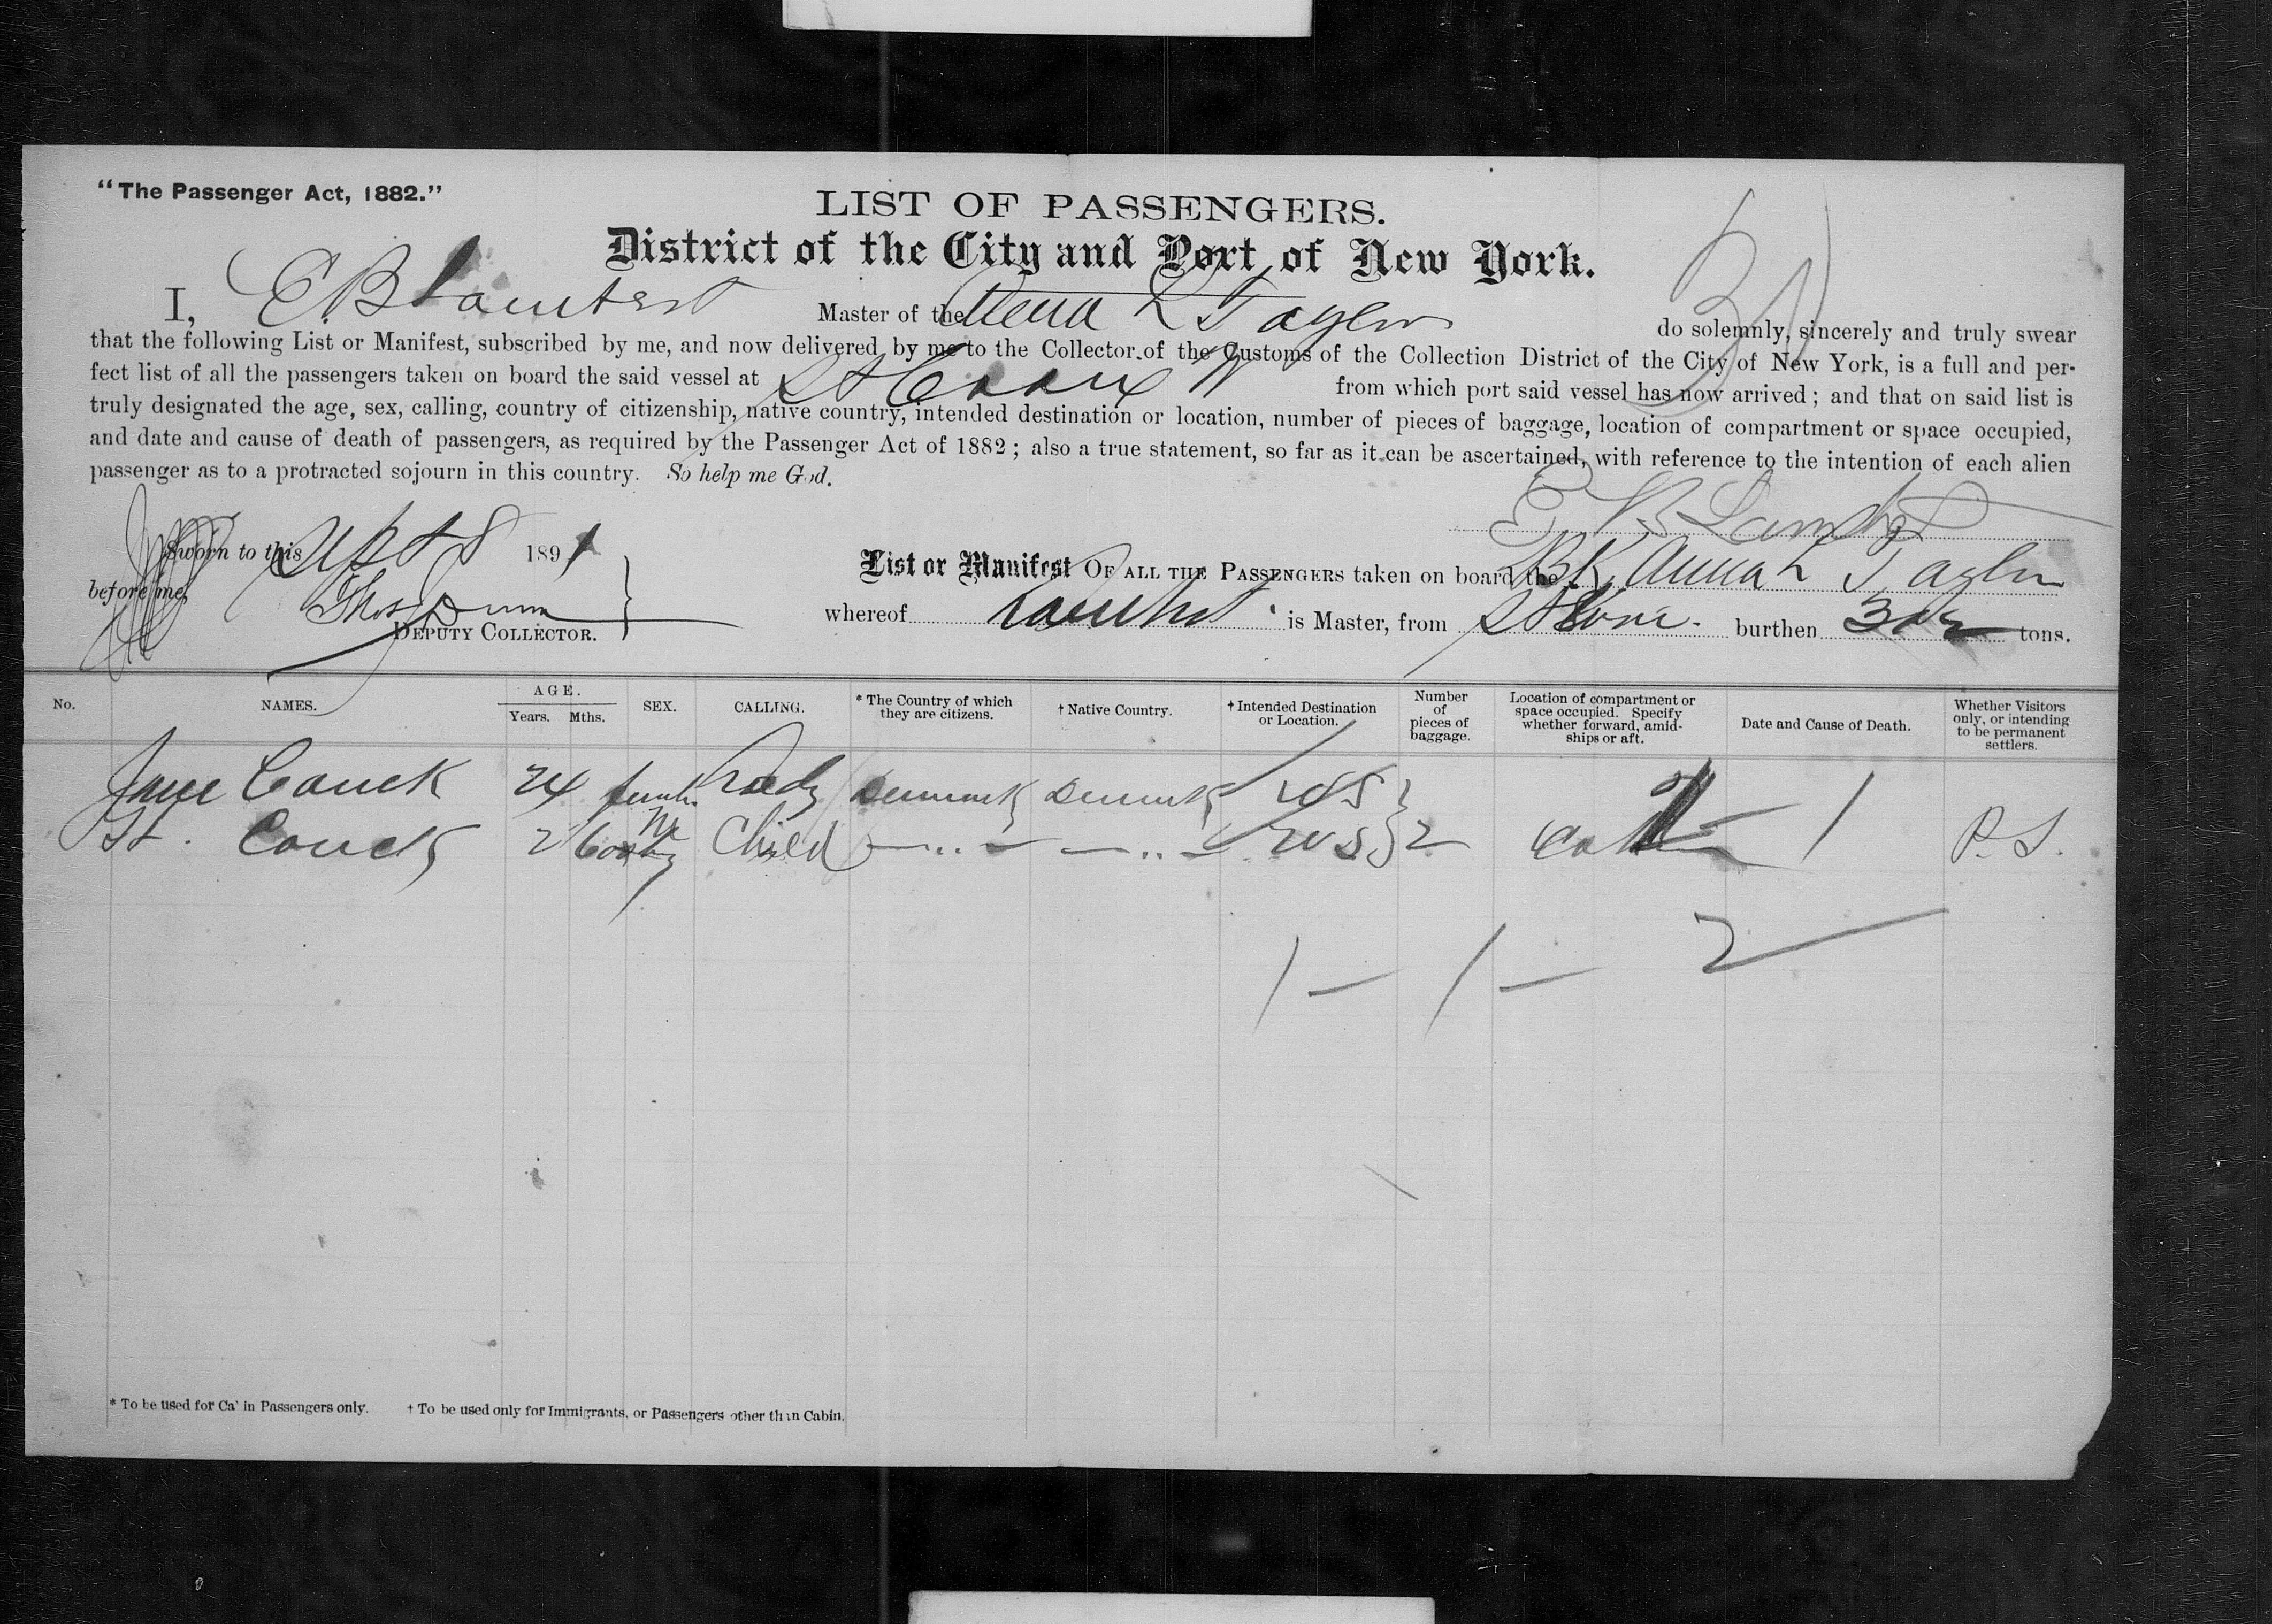 "The Passenger Act, 1882."
LIST OF PASSENGERS.
District of the City and Port of New York.
I, E B Lambert Master of the Anna L Taylor do solemnly, sincerely and truly swear
that the following List or Manifest, subscribed by me, and now delivered by me to the Collector of the Customs of the Collection District of the City of New York, is a full and per-
fect list of all the passengers taken on board the said vessel at St Croix from which port said vessel has now arrived; and that on said list is
truly designated the age, sex, calling, country of citizenship, native country, intended destination or location, number of pieces of baggage, location of compartment or space occupied,
and date and cause of death of passengers, as required by the Passenger Act of 1882; also a true statement, so far as it can be ascertained, with reference to the intention of each alien
passenger as to a protracted sojourn in this country. So help me God.
E B Lambert
Sworn to this 8 1891
before me, Thos Dunn
DEPUTY COLLECTOR.
List or Manifest OF ALL THE PASSENGERS taken on board the Bk Anna L Taylor
whereof Lambert is Master, from St Croix burthen tons.
No. NAMES. AGE. Years. Mths. SEX. CALLING. * The Country of which they are citizens. † Native Country. † Intended Destination or Location. Number of pieces of baggage. Location of compartment or space occupied. Specify whether forward, amid-ships or aft. Date and Cause of Death. Whether Visitors only, or intending to be permanent settlers.
Jane Couck 24 Lady Denmark Denmark U S
Couck 2 6 Child " " U S 2 P. S.
1 — 1 — 2
* To be used for Cabin Passengers only. † To be used only for Immigrants, or Passengers other than Cabin.